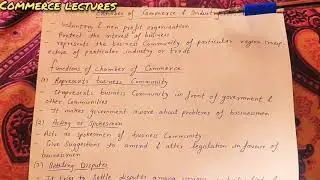 Commerce lectures
Chamber of Commerce & Industry
- Voluntary & non profit organisation
- Protect the interest of business
- represents the business Community of particular region
of particular industry or trade
Functions of chamber of Commerce
(1) Represents business Community
- It represents business Community in front of government &
other Communities
- It makes government aware about problems of businessmen
(2) Acting as Spokesman
- Acts as spokesmen of business Community
- Give Suggestions to amend & alter legislation in favour of
businessmen
(3) Settling Disputes
- It tries to Settle disputes among